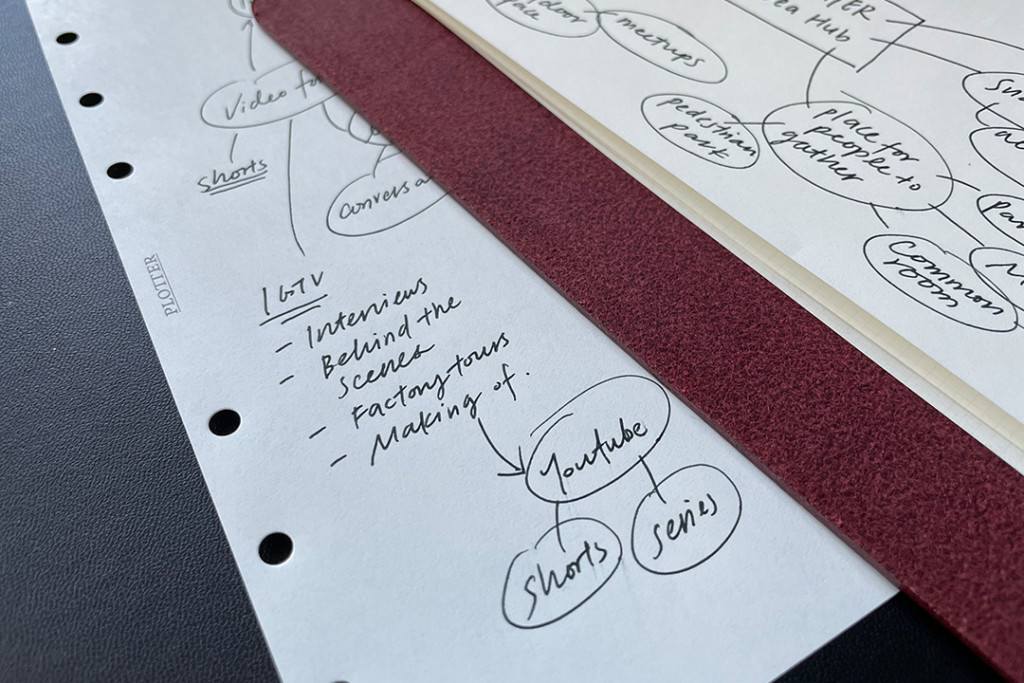 Video fo
shorts
convers
PLOTTER
IGTV
- Interviews
- Behind the
scenes
- Factory tours
- Making of.
Youtube
shorts
series
meetups
Hub
pedestrian
park
place for
people to
gather
common
room